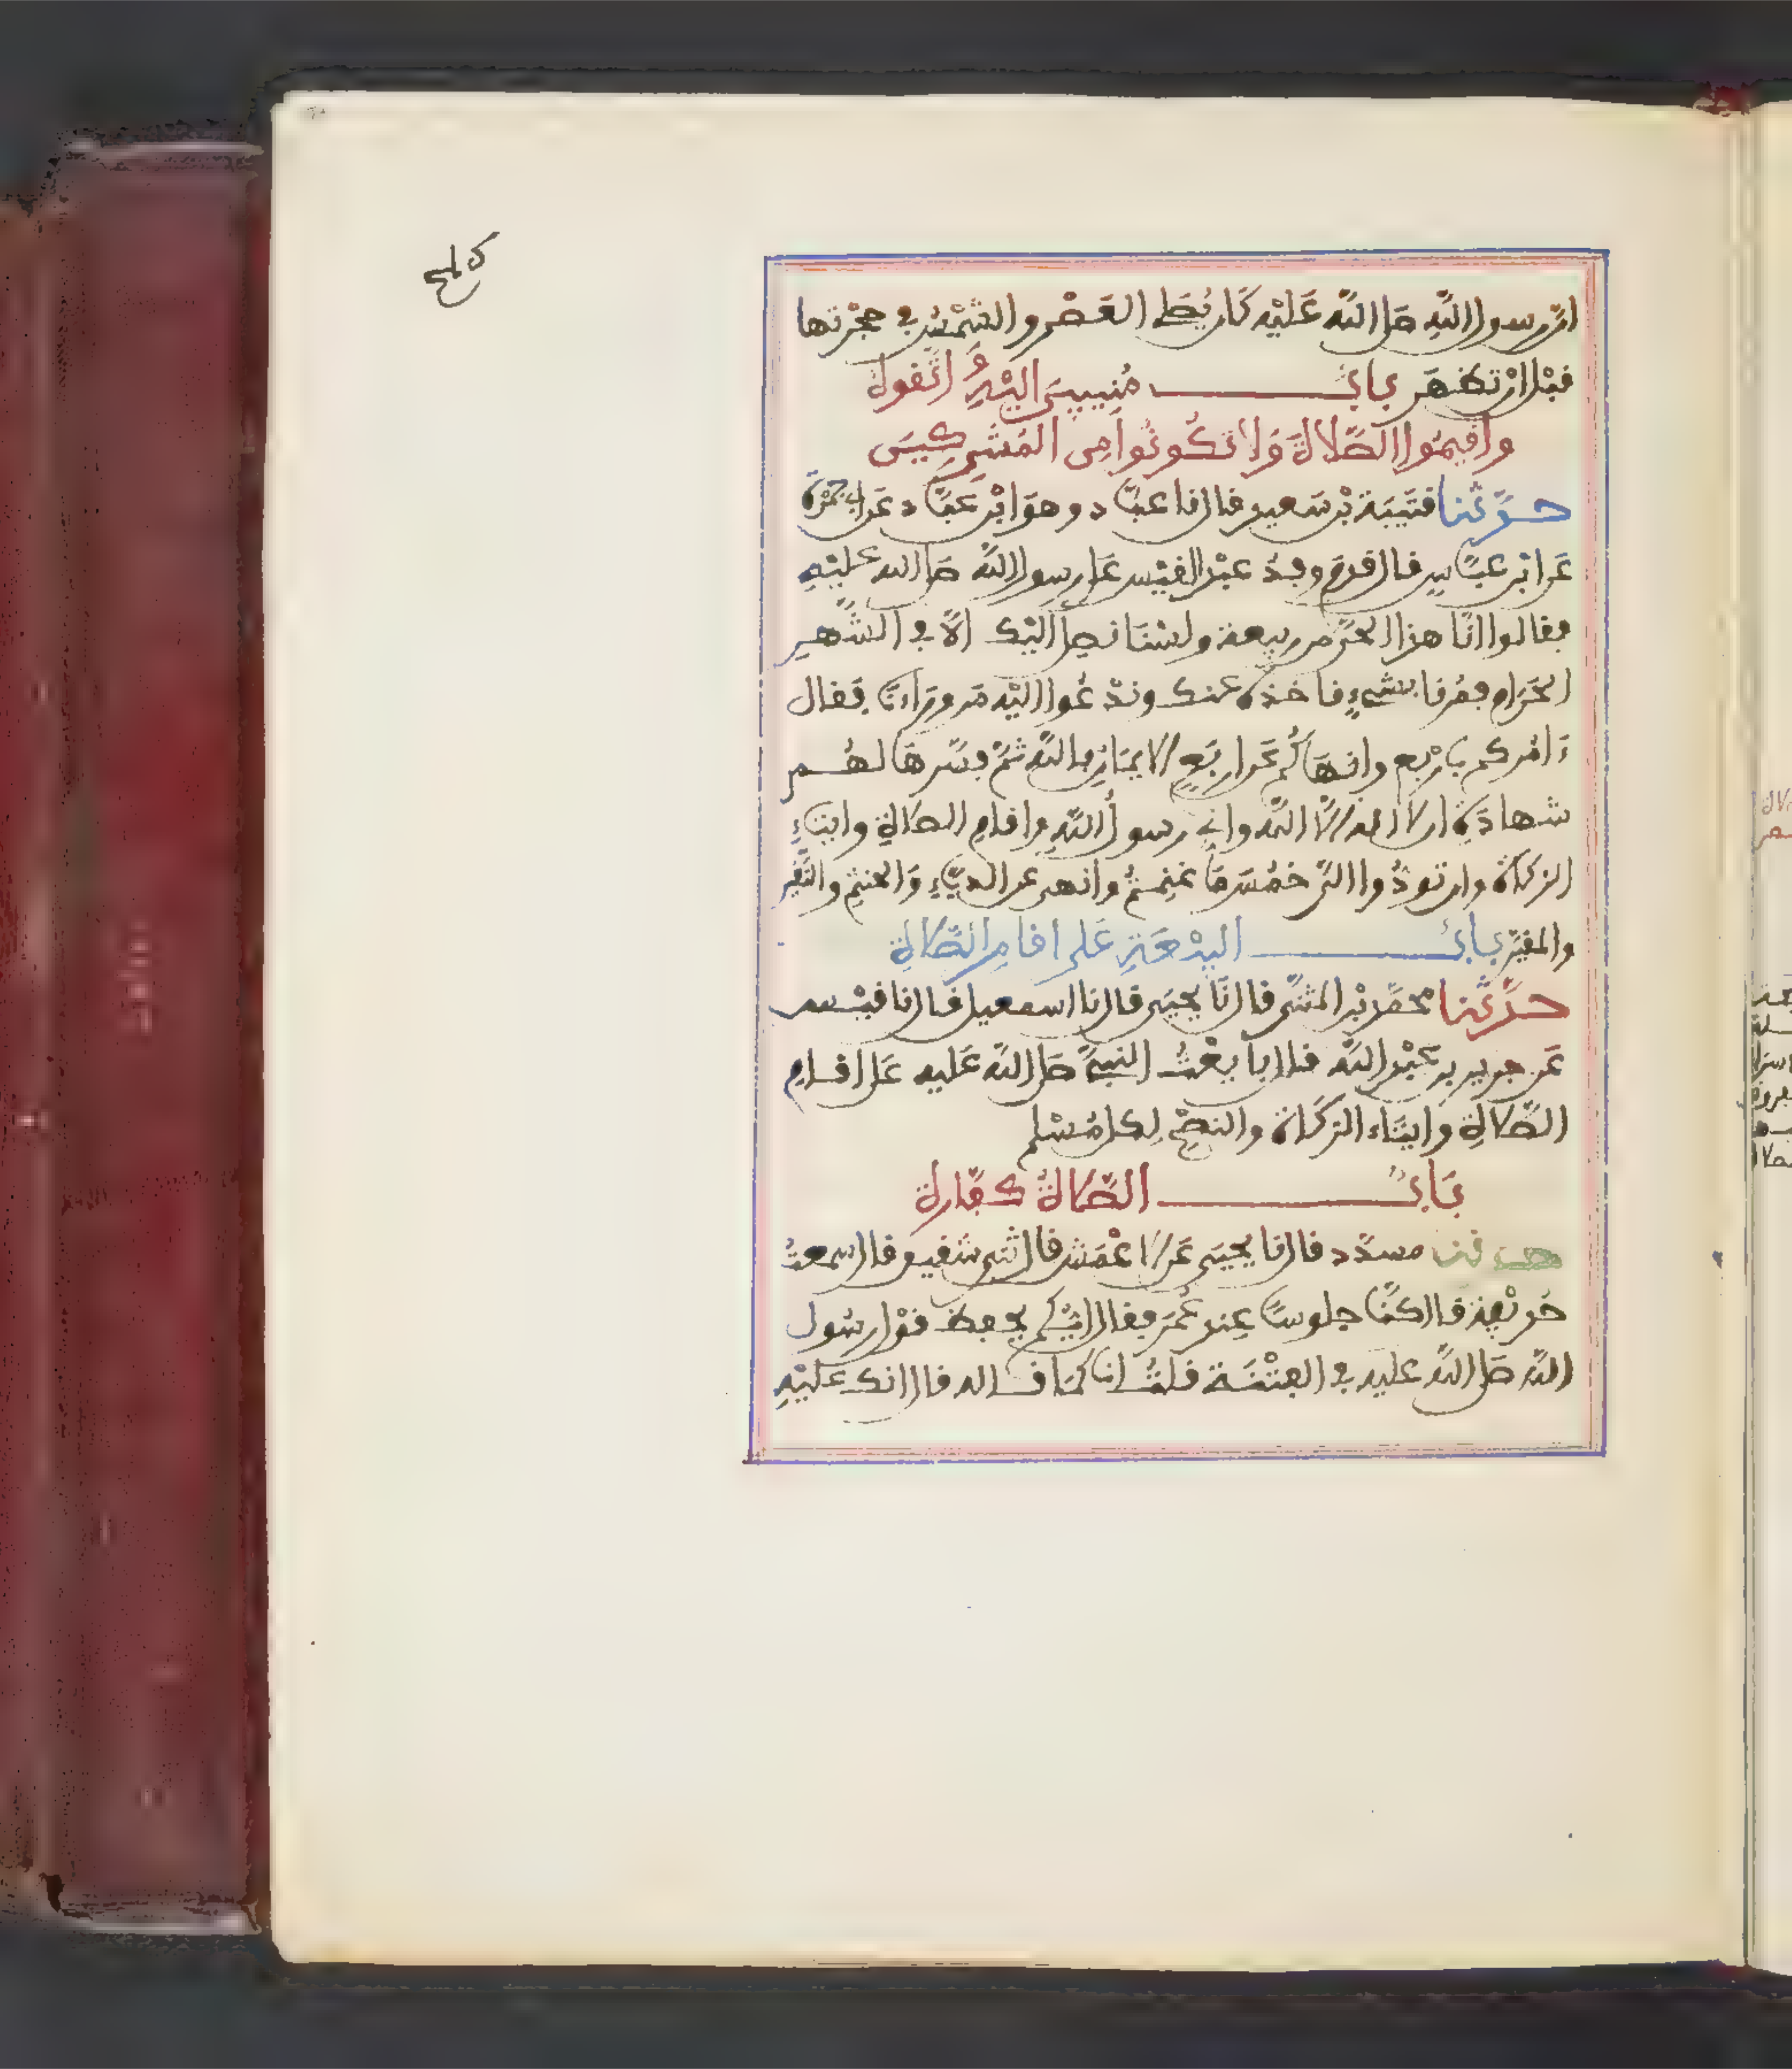 ان رسول الله صلى الله عليه كان يصلي العصر والشمس في حجرتها
قبل ان تظهر باب منيبين اليه واتقوه
واقيموا الصلاة ولا تكونوا من المشركين
حدثنا قتيبة بن سعيد قال نا عباد وهو ابن عباد عن ابي جمرة
عن ابن عباس قال قدم وفد عبد القيس على رسول الله صلى الله عليه
فقالوا انا هذا الحي من ربيعة ولسنا نصل اليك الا في الشهر
الحرام فمرنا بشيء ناخذه عنك وندعوا اليه من وراءنا فقال
ءامركم باربع وانهاكم عن اربع الايمان بالله ثم فسرها لهم
شهادة ان لا اله الا الله واني رسول الله واقام الصلاة وايتاء
الزكاة وان تودوا الي خمس ما غنمتم وانهى عن الدباء والحنتم والنقير
والمقير باب البيعة على اقام الصلاة
حدثنا محمد بن المثنى قال نا يحيى قال نا اسمعيل قال نا قيس
عن جرير بن عبد الله قال بايعت النبي صلى الله عليه على اقام
الصلاة وايتاء الزكاة والنصح لكل مسلم
باب الصلاة كفارة
حدثنا مسدد قال نا يحيى عن الاعمش قال ثني شقيق قال سمعت
حذيفة قال كنا جلوسا عند عمر فقال ايكم يحفظ قول رسول
الله صلى الله عليه في الفتنة قلت انا كما قاله قال انك عليه